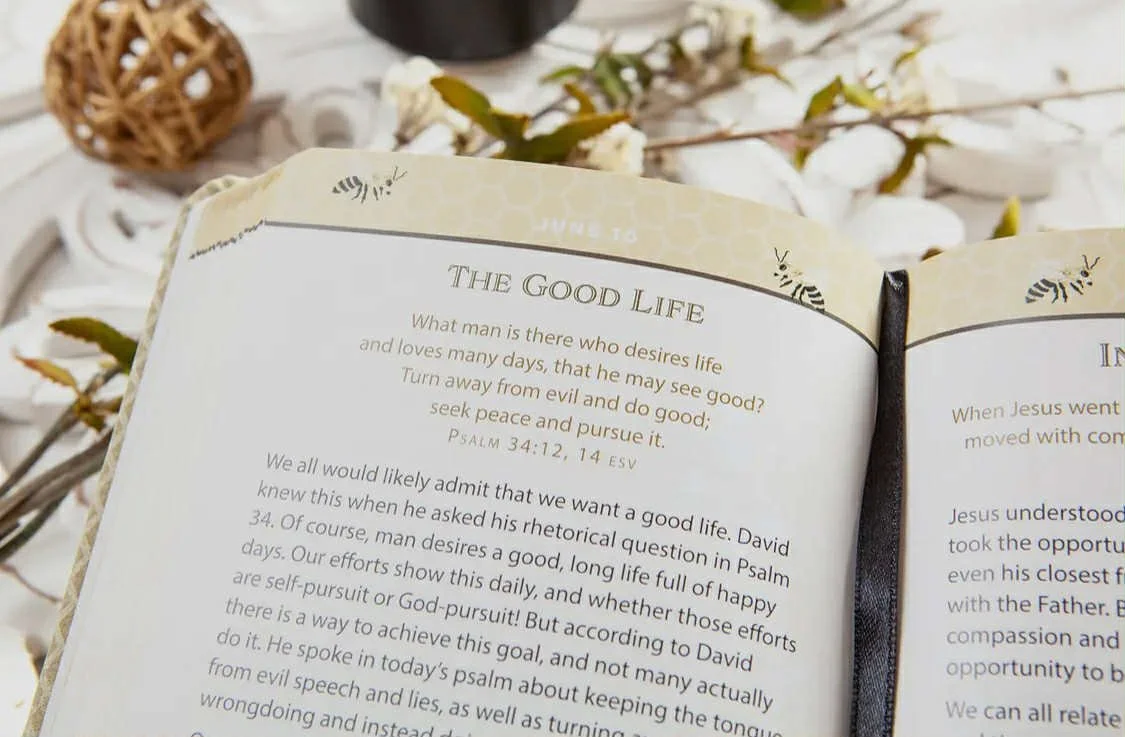 JUNE 10
THE GOOD LIFE
What man is there who desires life
and loves many days, that he may see good?
Turn away from evil and do good;
seek peace and pursue it.
PSALM 34:12, 14 ESV
We all would likely admit that we want a good life. David
knew this when he asked his rhetorical question in Psalm
34. Of course, man desires a good, long life full of happy
days. Our efforts show this daily, and whether those efforts
are self-pursuit or God-pursuit! But according to David
there is a way to achieve this goal, and not many actually
do it. He spoke in today's psalm about keeping the tongue
from evil speech and lies, as well as turning
wrongdoing and instead
When Jesus went
moved with
Jesus understood
took the
even his closest
with the Father.
compassion and
opportunity to
We can all relate